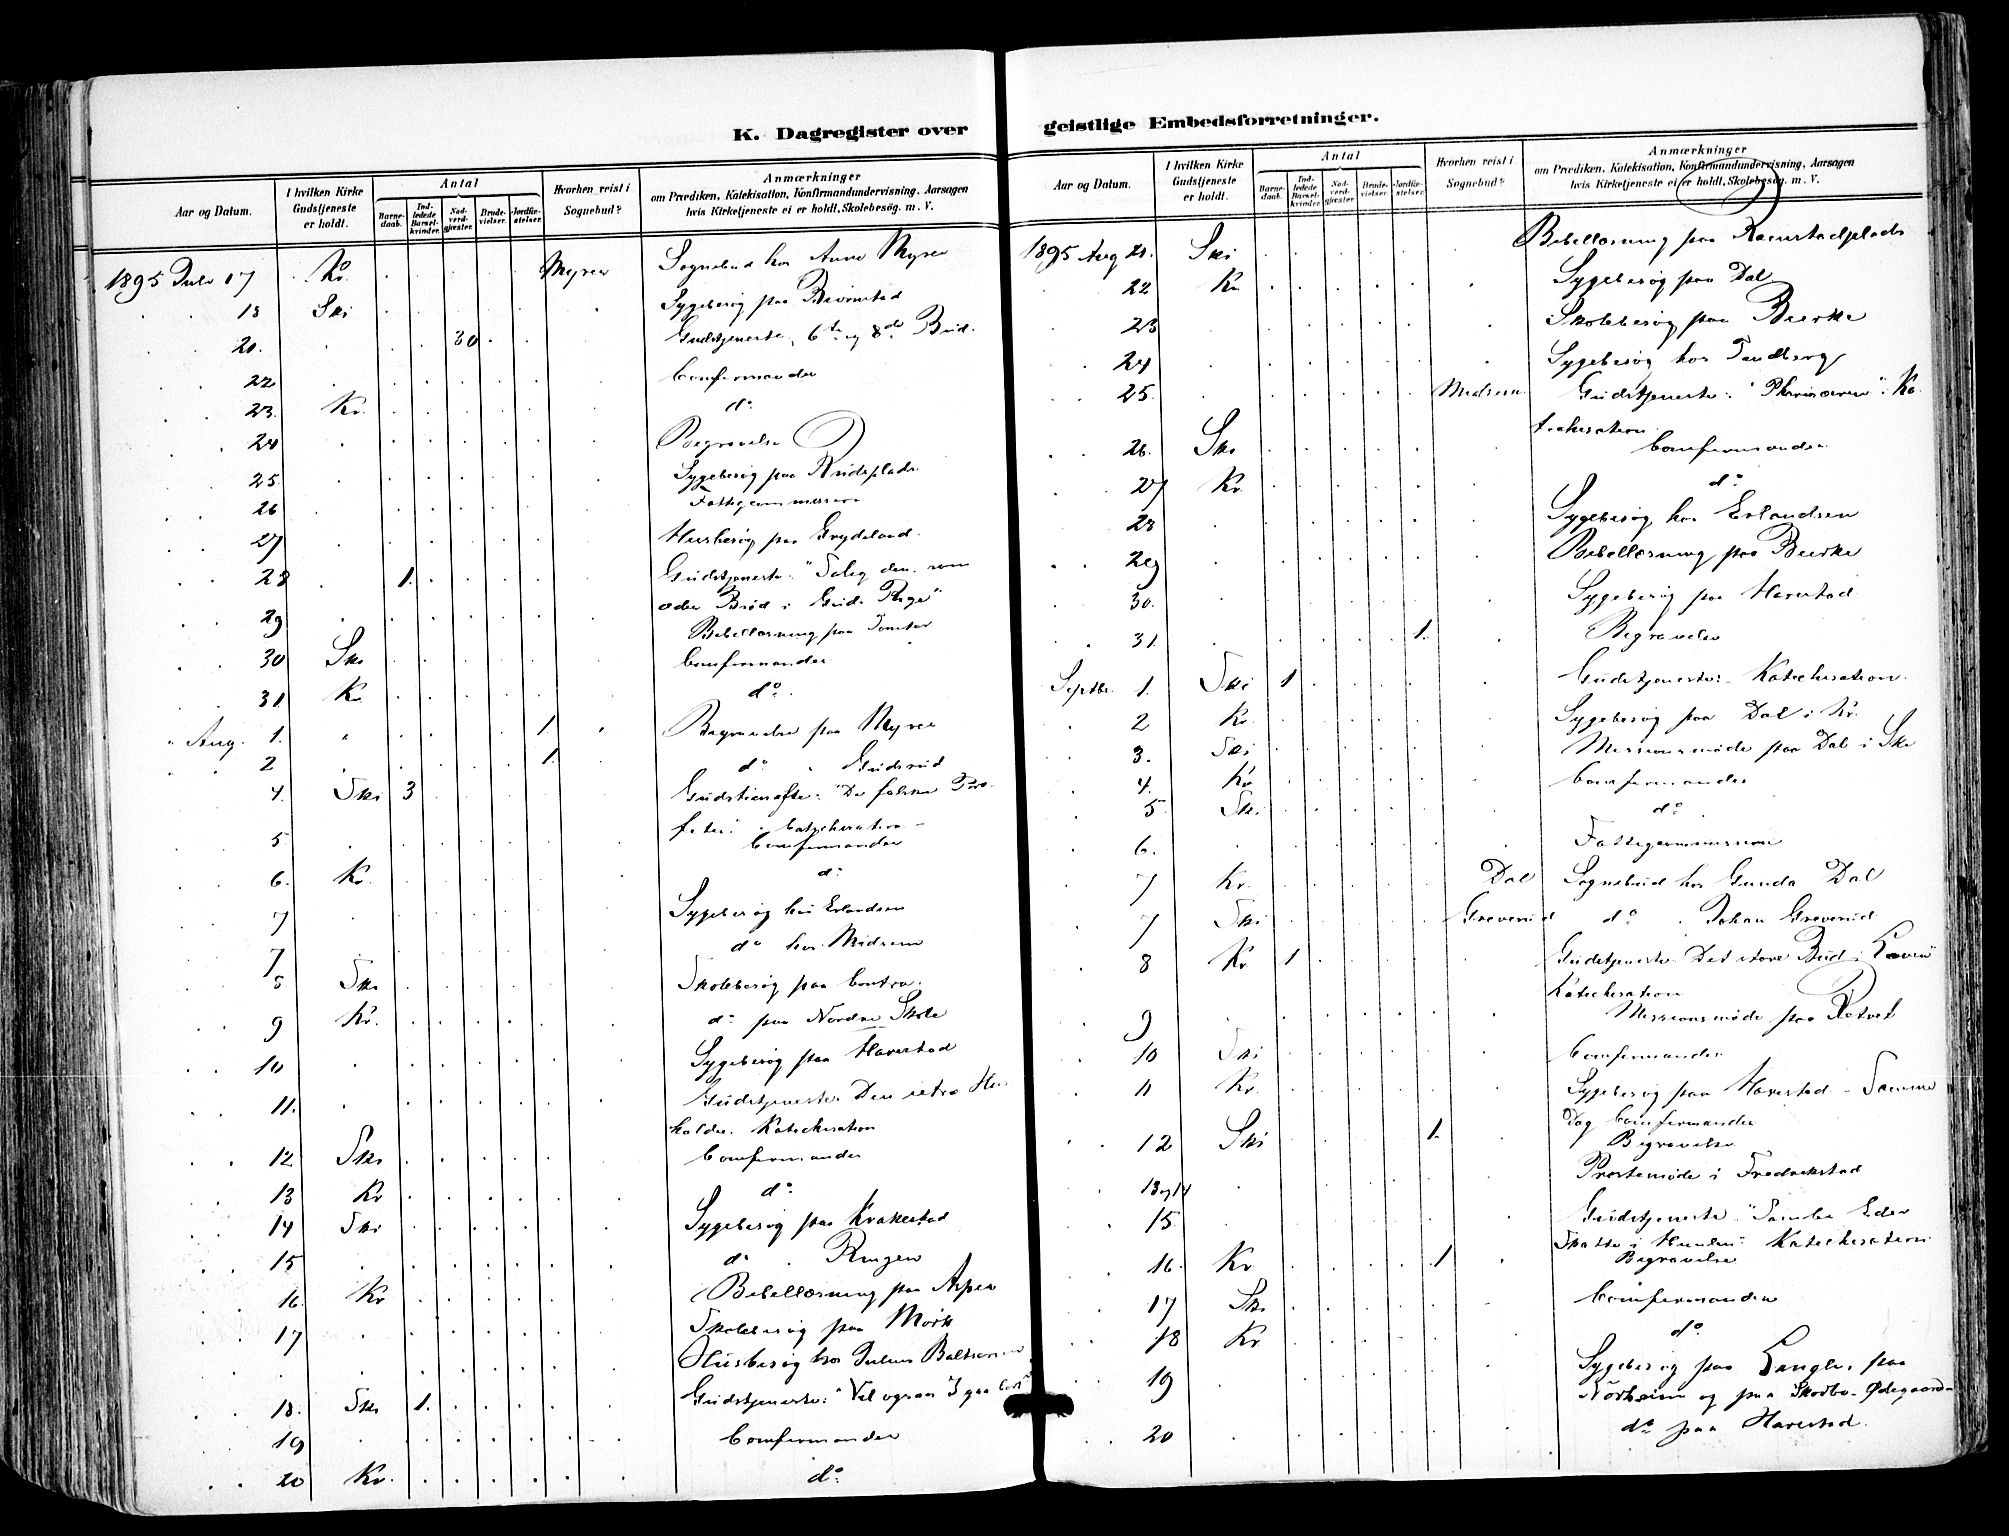 K. Dagregister over
Aar og Datum.
I hvilken Kirke Gudstjeneste er holdt.
Antal
Barnedaab.
Indledede Barselkvinder.
Nadverdgjæster.
Brudevielser.
Jordfæstelser.
Hvorhen reist i Sognebud?
Anmærkninger
om Prædiken, Katekisation, Konfirmandundervisning, Aarsagen
hvis Kirketjeneste ei er holdt, Skolebesøg. m. V.
1895 Juli 17 Kr. Myrer Sognebud hos Anne Myrer
18 Ski Sygebesøg paa
20. 30 Gudstjeneste, 6te og 8de Bud.
22 Comfirmander
23. Kr. do
24 Begravelse
25. Sygebesøg paa Rudsplads.
26 Fattigcommission
27 Husbesøg paa Grydeland.
28 1. Gudstjeneste: "Salig den, som
æder Brød i Guds Rige"
29 Bibellæsning paa Tomter
30 Ski Comfirmander
31 Kr do.
" Aug. 1. " 1. Begravelse paa Myrer
2 1. do Gudsrud
4. Ski 3 Gudstieneste: "De falske Pro-
feter" Catechisation -
5 Comfirmander
6. Kr. do
7 Sygebesøg hos Erlandsen
7 do hos Midsem
8 Ski Skolebesøg paa Contra.
9 Kr. do paa Nordre Skole
10 Sygebesøg paa Haverstad
11. Gudstjeneste. Den utro Hus
holder. Katechisation
12 Ski Comfirmander
13 Kr do
14 Ski Sygebesøg paa Krakestad
15 do Ringen
16. Kr Bibellæsning paa Asper
17 Skolebesøg paa Mørk
Husbesøg hos Julius Baltsersen
18. Ski 1. Gudstjeneste: "Vel ogsaa I gaa bort"
19 Comfirmander
20 Kr. do
geistlige Embedsforretninger.
Aar og Datum.
I hvilken Kirke Gudstjeneste er holdt.
Antal
Barnedaab.
Indledede Barselkvinder.
Nadverdgjæster.
Brudevielser.
Jordfæstelser.
Hvorhen reist i Sognebud?
Anmærkninger
om Prædiken, Katekisation, Konfirmandundervisning, Aarsagen
hvis Kirketjeneste ei er holdt, Skolebesøg. m. V.
1895 Aug 21. Ski Bibellæsning paa
22 Kr Sygebesøg paa Dal
23 Skolebesøg paa Bierke
24 Sygebesøg hos Tandberg
25. Midsem Gudstjeneste: "Pharisæeren". Ka
techisation.
26. Ski Comfirmander
27 Kr. do
28 Sygebesøg hos Erlandsen
29 Bibellæsning paa Bierke
30. Sygebesøg paa Haverstad
31. 1. Begravelse
Septbr. 1. Ski 1 Gudstjeneste: - Katechisation.
2 Kr. Sygebesøg paa Dal i Kr.
3. Ski Missionsmøde paa Dal i Ski
4. Kr Comfirmander
5 Ski do
6. Fattigcommission
7 Kr. Dal Sognebud hos Gunda Dal
7 Ski Greverud do Johan Greverud
8 Kr. 1 Gudstjeneste Det store Bud i Loven
Katechisation
9 Missionsmøde paa Retvet
10 Ski Comfirmander
11 Kr. Sygebesøg paa Haverstad - Samme
Dag Comfirmander
12 Ski 1. Begravelse
13 og 14 Præstemøde i Fredrikstad
15 Gudstjeneste "Samler Eder
Skatte i Himlen" Katechisation
16. Kr 1 Begravelse
17 Ski Comfirmander
18 Kr do
19 Sygebesøg paa Langli, paa
Nordheim og paa Skotbo-Ødegaarden
20 do paa Haverstad.